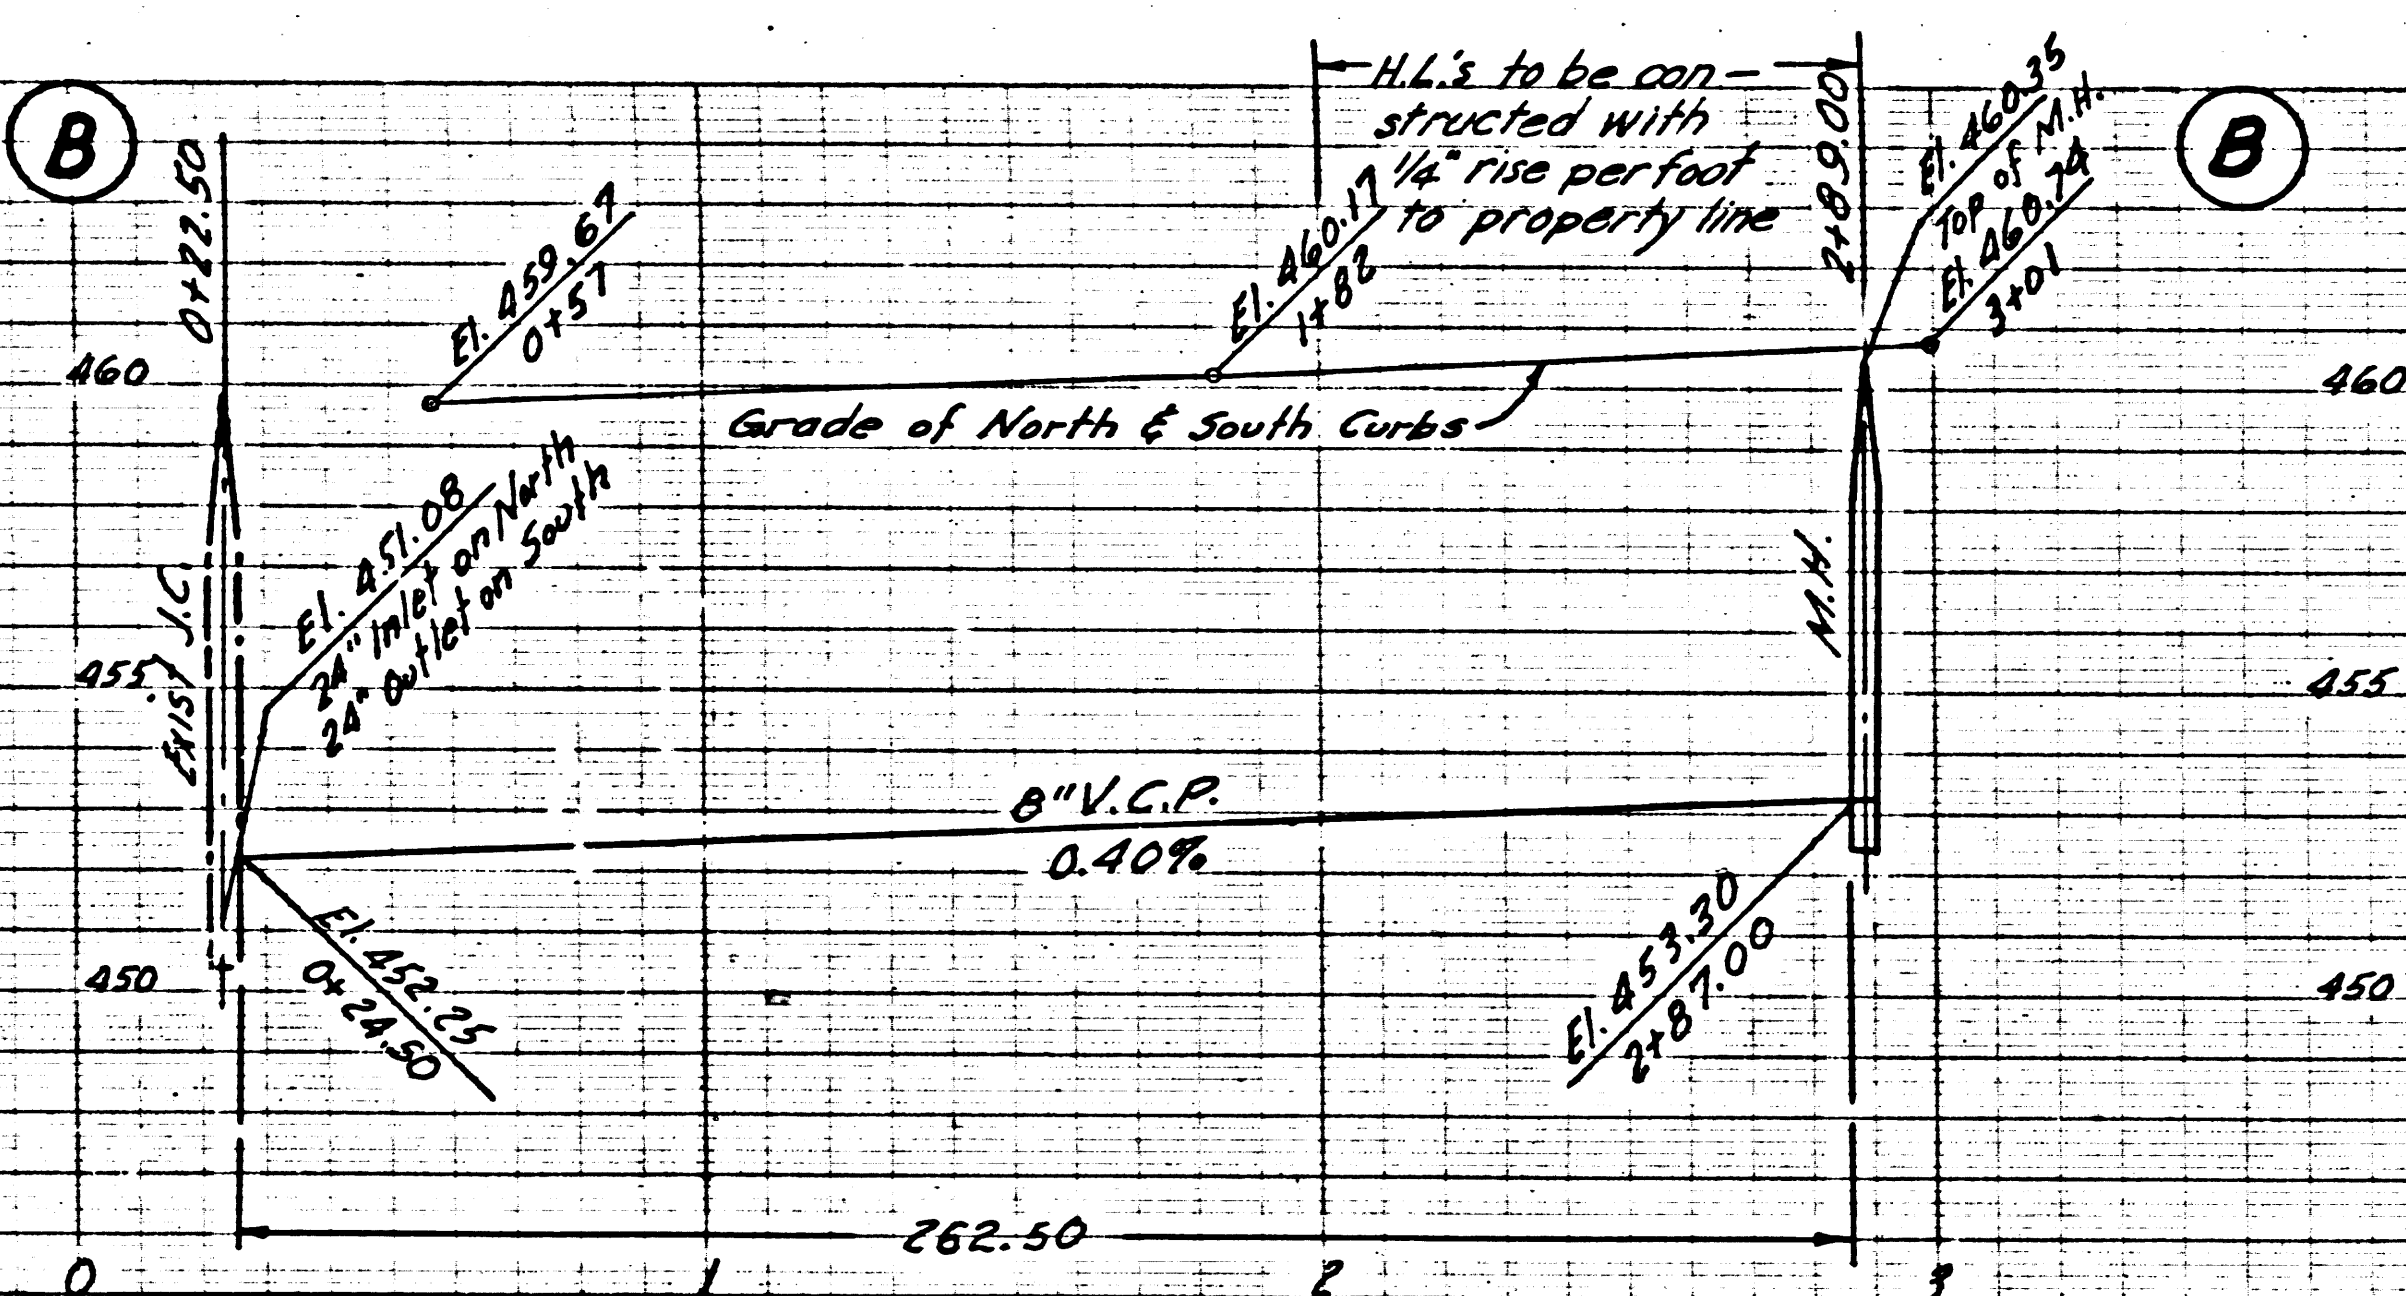 B
0+22.50
El. 459.67
0+57
H.L.'s to be con-
structed with
1/4" rise per foot
to property line
El. 460.17
1+82
2+89.00
El. 460.35
Top of M.H.
El. 460.74
3+01
B
460
460
Grade of North & South Curbs
El. 451.08
24" Inlet on North
24" Outlet on South
Exist J.C.
M.H.
455
455
8" V.C.P.
0.40%
El. 452.25
0+24.50
El. 453.30
2+87.00
450
450
262.50
0
1
2
3